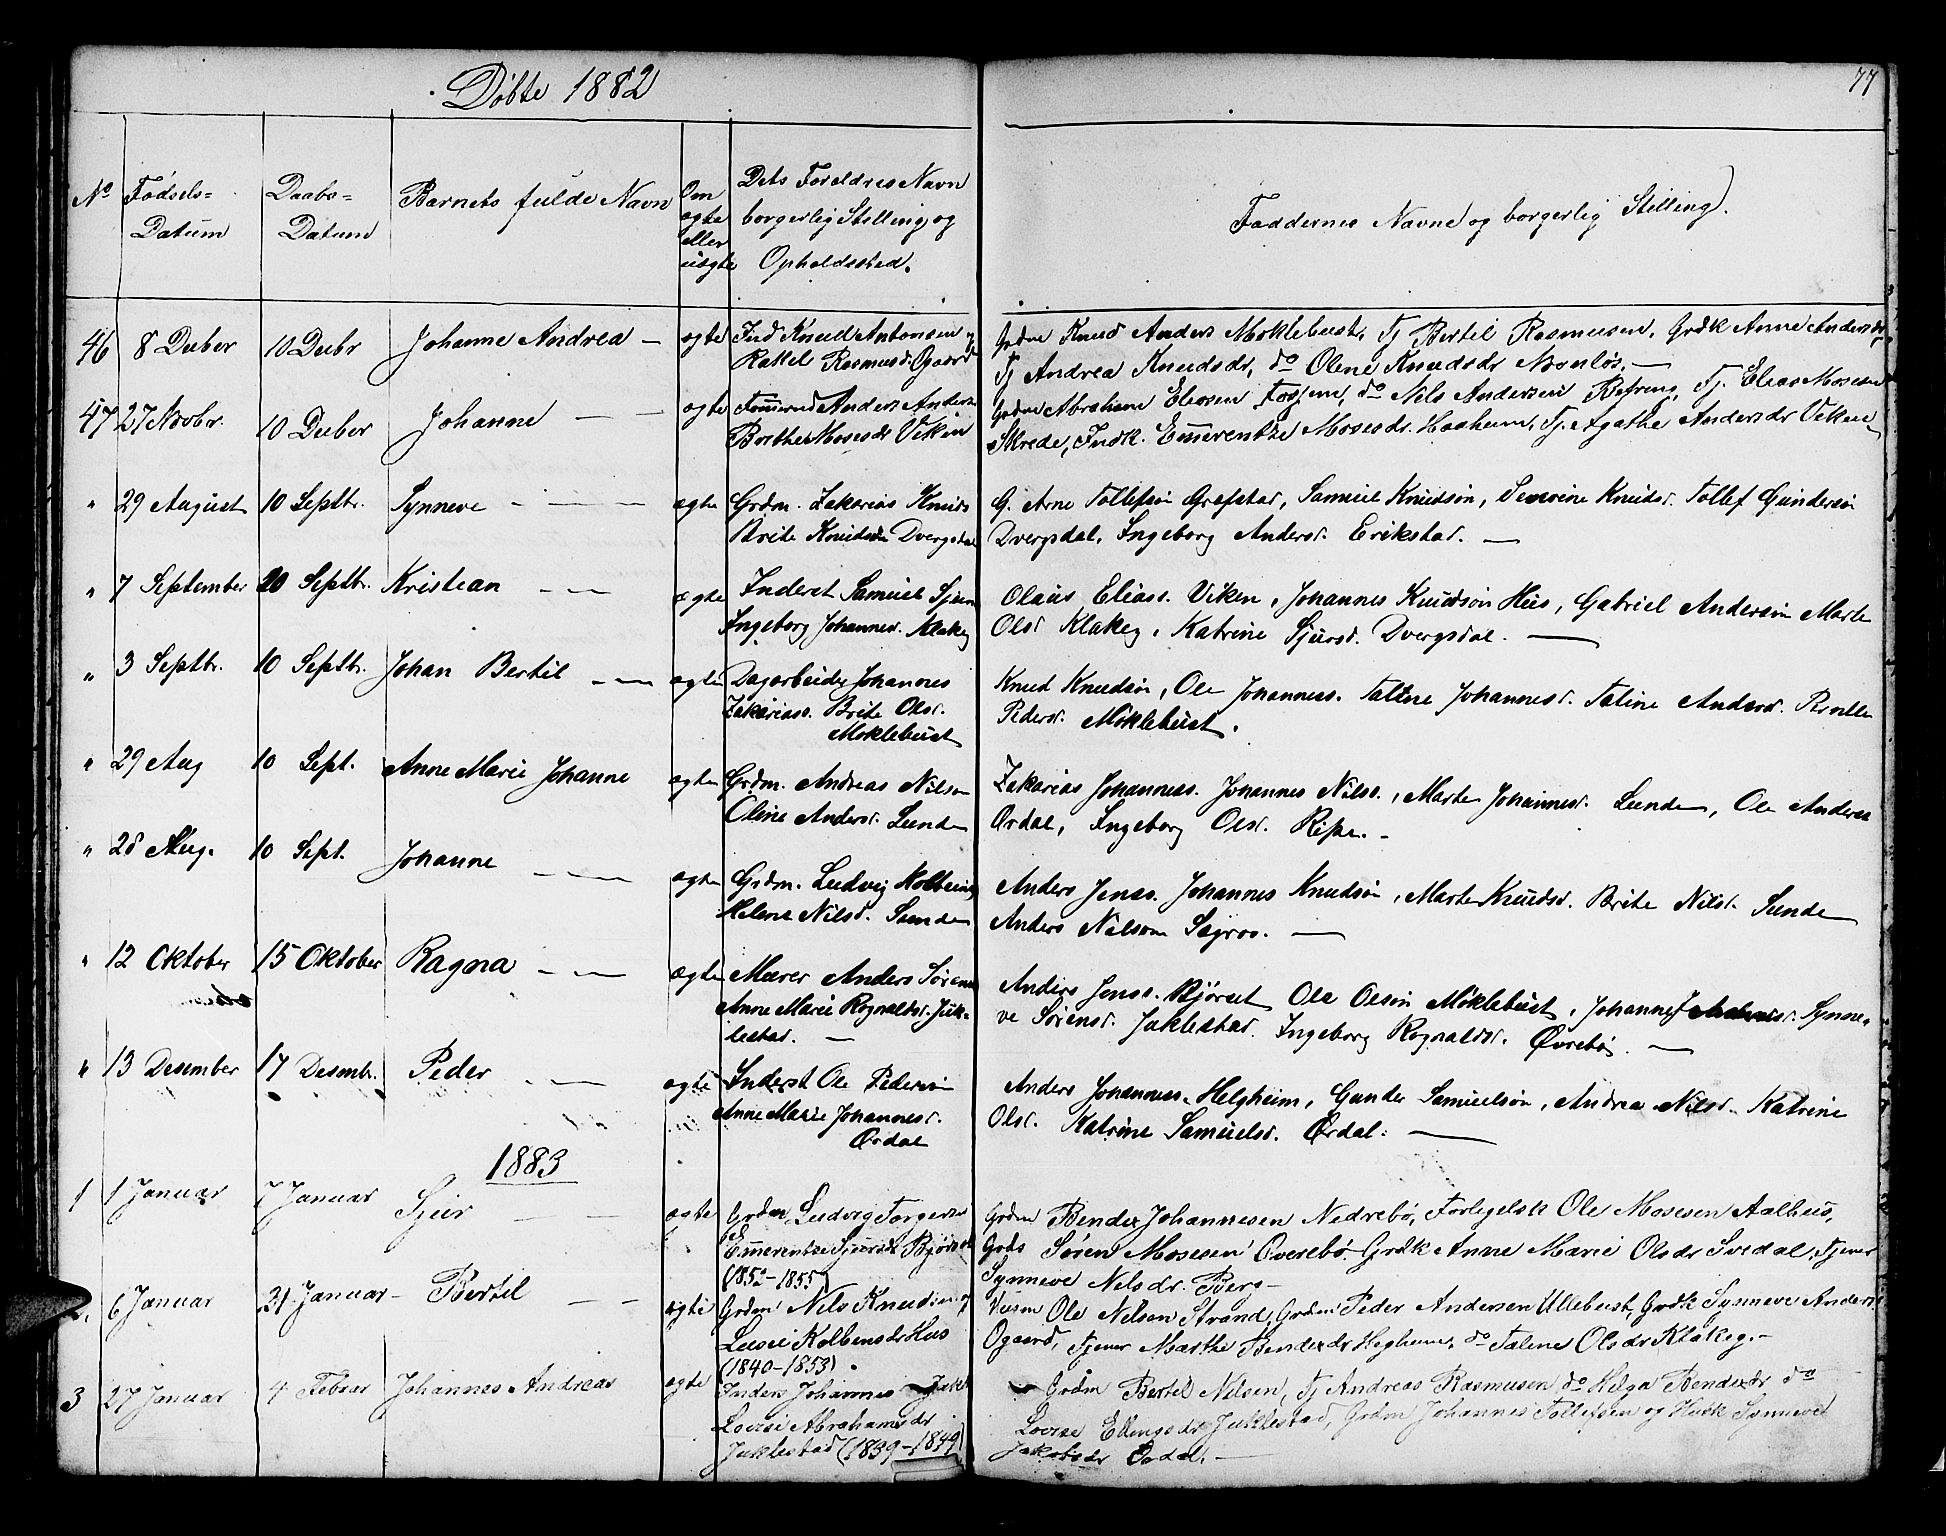 Døbte 1882
77
No
Fødsels-
Datum
Daabs-
Datum
Barnets fulde Navn
Om
ægte
eller
uægte
Dets Forældres Navn
borgerlig Stilling og
Opholdssted.
Faddernes Navne og borgerlig Stilling.
46 8 Decber 10 Decbr Johanne Andrea — ægte Ind Knud Antonsen og
Rakel Rasmusdr Ogaard
Grdm Knud Anders Møklebust, Tj Bertil Rasmusen, Grdk Anne Andersdr,
Tj Andrea Knudsdr, do Olene Knudsdr —
47 27 Novbr. 10 Decber Johanne — — ægte Anders Anders
Borthe Mosesdr Vikin
Grdm Abraham Eleasen do Nils Andersen Tj. Elias Mosesen
Skrede, Indk. Emerentze Mosesdr. Hoaheim, Tj. Agathe Andersdr Viken
" 29 August 10 Septbr. Synneve — ægte Grdm. Zakarias Knuds
Brite Knudsdr Dvergsdal
G. Arne Tollefsøn Grefstad, Samuel Knudsøn, Severine Knudsd. Tollef Gundersøn
Dvergsdal, Ingeborg Andersd. Erikstad. —
" 7 September 20 Septbr. Kristian — ægte Inderst Samuel Sjurs
Ingeborg Johannesd. Klakeg
Olaus Eliass. Viken, Johannes Knudsøn Hus, Gabriel Andersøn Marte
Olsd Klakeg, Katrine Sjursd. Dvergsdal. —
" 3 Septbr. 10 Septbr. Johan Bertil — ægte Dagarbeider Johannes
Zakariass. Brite Olsd.
Møklebust
Knud Knudsøn, Ole Johanness. Taline Johannesd. Taline Andersd. Pernille
Pedersd. Møklebust.
" 29 Aug 10 Sept. Anne Marie Johanne ægte Grdm. Andreas Nilsøn
Oline Andersd. Sunde
Zakarias Johanness. Johannes Nilss., Marte Johannesd. Sunde, Ole Anderss
Ørdal, Ingeborg Olsd. Ripe. —
" 28 Aug. 10 Sept. Johanne — ægte Grdm. Ludvig Kolbeins
Helene Nilsd. Sunde
Anders Jenss. Johannes Knudsøn, Marte Knudsd. Brite Nilsd. Sunde
Anders Nilsøn Søgros. —
" 12 Oktober 15 Oktober Ragna — ægte Murer Anders Sørens
Anne Marie Rognaldsd. Juk-
lestad. —
Anders Jenss. Bjørset Ole Olsøn Møklebust, Johannes Synne-
ve Sørensd. Juklestad. Ingeborg Rognaldsd. Øvrebø. —
" 13 Desember 17 Desmbr. Peder — ægte Inderst Ole Pedersøn
Anne Marie Johannesd.
Ørdal
Anders Johanness. Helgheim, Gunder Samuelsøn, Andrea Nilsd. Katrine
Olsd. Katrine Samuelsd. Ørdal. —
1883
1 1 Januar 7 Januar Sjur — — ægte Grdm Ludvig Torgersen
Emerentze Sjursdr Bjørset
(1852-1855)
Grdm Bender Johannesen Nedrebø, Forligelsk Ole Mosesen Aalhus,
Grds Søren Mosesen Øvrebø Grdk Anne Marie Olsdr Svedal, Tjener
Synneve Nelsdr. Berg —
2. 6 Januar 21 Januar — Bertil — — ægte Grdm Nils Knudsen og
Lusie Kolbensdr Hus
(1840-1853).
Ole Nelsen Strand, Grdm Peder Andersen Ullebust, Grdk Synneve Anders
Ogaard, Tjener Marthe Bendexdr Heghem, do Talene Olsdr Klakeg. —
3 27 Januar 4 Febuar Johannes Andreas ægte Inders Johannes
Lovise Abrahamsdr
Juklestad (1839-1849)
Grdm Bertil Nilsen, Tj Andreas Rasmusen do Helga Bendexdr do
Lovise Ellingsdr Juklestad, Grdm Johannes Tollefsen og Husk Synneve
Jakobsdr Ordal. —